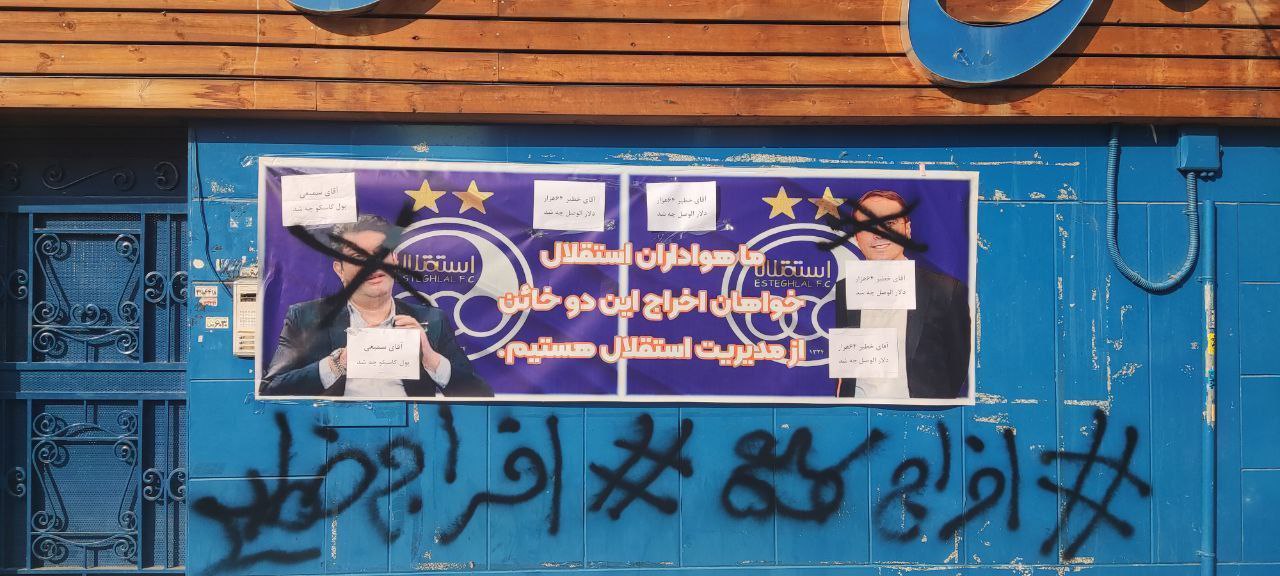 آقای سمیعی
پول گاسکو چه شد
آقای خطیر ۶۴هزار
دلار الوصل چه شد
آقای خطیر ۶۴هزار
دلار الوصل چه شد
استقلال
ESTEGHLAL F.C
استقلال
ESTEGHLAL F.C
ما هواداران استقلال
خواهان اخراج این دو خائن
از مدیریت استقلال هستیم.
۱۳۲۴
آقای خطیر ۶۴هزار
دلار الوصل چه شد
آقای سمیعی
پول گاسکو چه شد
آقای خطیر ۶۴هزار
دلار الوصل چه شد
#اخراج سمیعی #اخراج خطیر